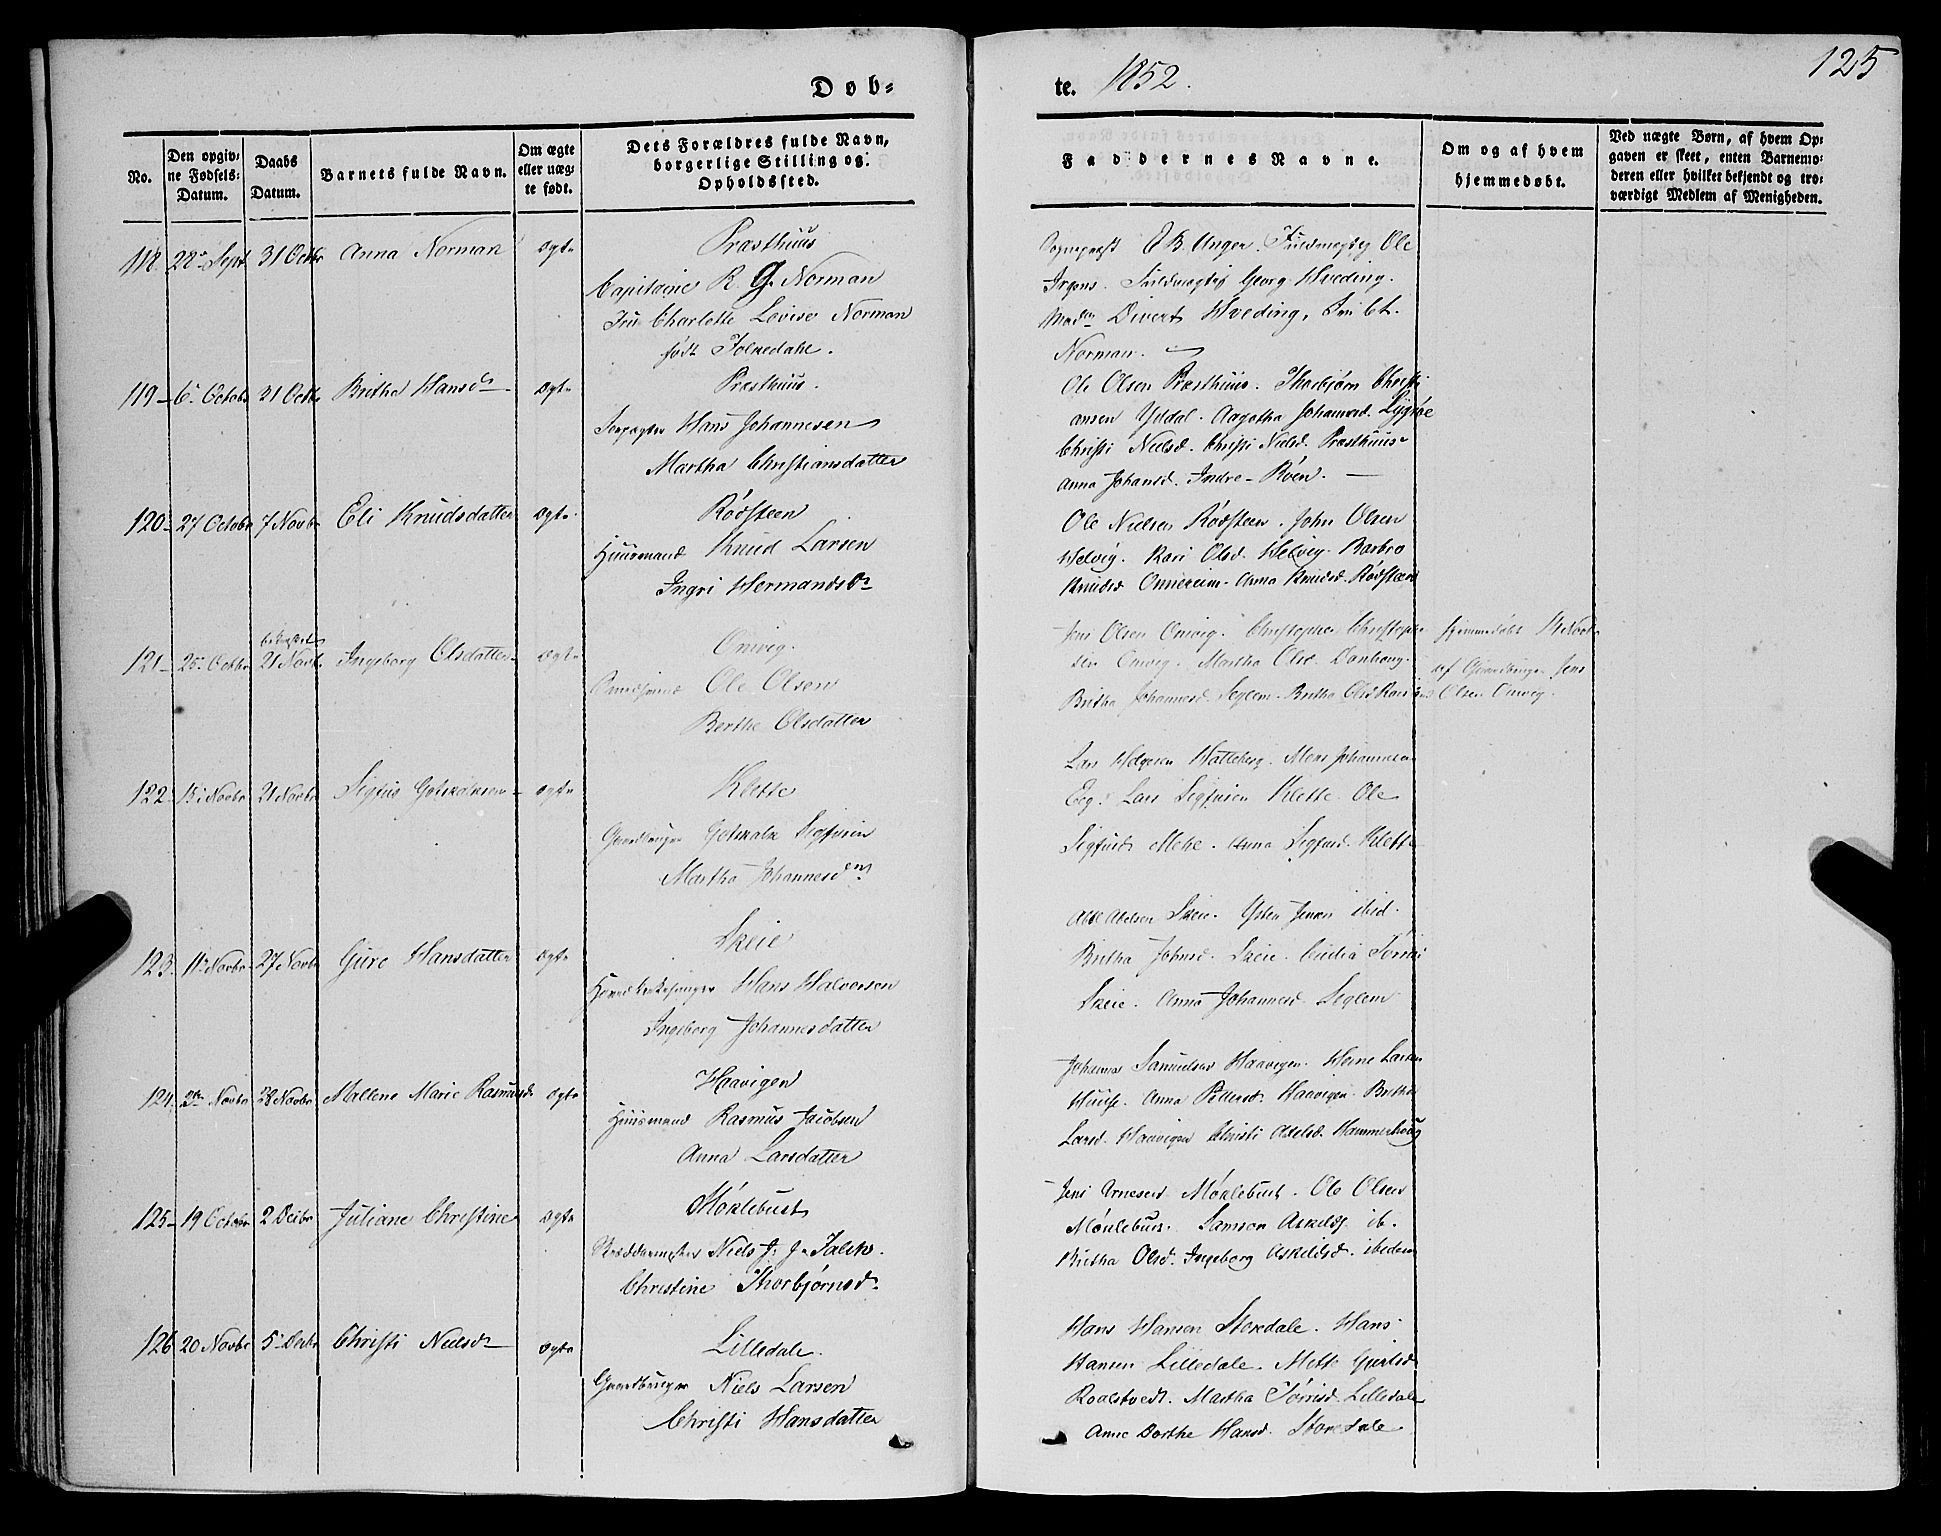 Døb=
te. 1852.
125
No.
Den opgiv=
ne Fødsels=
Datum.
Daabs
Datum.
Barnets fulde Navn.
Om ægte
eller uæg=
te født.
Dets Forældres fulde Navn,
borgerlige Stilling og
Opholdssted.
Faddernes Navne.
Om og af hvem
hjemmedøbt.
Ved uægte Børn, af hvem Op=
gaven er skeet, enten Barnemo=
deren eller hvilket bekjendt og tro=
værdigt Medlem af Menigheden.
118. 28 Sept 31 Octbr Anna Norman ægte
Præsthuus
Capitaine R. G. Norman
Fru Charlotte Lovise Norman
født
E B. Unger. Fuldmægtig Ole
Irgens. Fuldmægtig Georg Hveding.
Divert Hveding,
Norman.
119 6 Octobr 31 Octbr Britha Hansd ægte
Præsthuus.
Hans Johannesen
Martha Christiansdatter
Ole Olsen Præsthuus. Thorbjørn Christi
ansen Yldal. Aagotha Johannesd.
Christi Nielsd. Christi Nielsd. Præsthuus
Anna Johansd. Indre-Røen.
120 27 Octobr 7 Novbr Eli Knudsdatter ægte
Rødsteen
Huusmand Knud Larsen
Ingri Hermandsdr
Ole Nielsen Rødsteen. John Olsen
Helvig. Kari Olsd. Helvig. Barbro
Knudsd Anna Knudsd. Rødsteen
121 25 Octbr 21 Novbr Ingeborg Olsdatter ægte
Onvig.
Ole Olsen
Berthe Olsdatter
Jens Olsen Onvig. Christopher Christophe
sen Onvig. Martha Olsd.
Britha Johannesd. Seglem. Britha Olsd
hjemmedøbt 14 Novbr
af Gaardbruger Jens
Olsen Onvig.
122 15 Novbr 21 Novbr Sigfus ægte
Klette
Gaardbruger
Martha Johannesd
Lars Helgesen Hatleberg. Mons Johannesen
Eeg. Lars Sigfusen Klette. Ole
Anna Klette
123. 11 Novbr 27 Novbr Guro Hansdatter ægte
Skeie
Hans Halvorsen
Ingeborg Johannesdatter
Skeie. ibid.
Britha Johnsd. Skeie.
Skeie. Anna Johannesd. Seglem
124. Novbr 28 Novbr Mallene Marie Rasmusd ægte
Haavigen
Huusmand Rasmus Jacobsen
Anna Larsdatter
Johannes Samuelsen Haavigen. Larsen
Huuse. Anna Pedersd. Haavigen. Britha
Larsd. Haavigen Christi Axelsd. Hammerhoug
125 19 Octobr 2 Decbr Juliane Christine ægte
Møklebust
Niels J: J. Falch.
Christine Thorbjørnsd.
Jens Arnesen Møklebust. Ole Olsen
Møklebust. Samson ib.
Britha Olsd. Ingeborg Askelsd. ibedem
126 20 Novbr 5 Decbr Christi Nielsd ægte
Lilledale.
Gaardbruger Niels Larsen
Christi Hansdatter
Hans Hansen Storedale. Hans
Hansen Lilledale. Mette Gjertsd
Roaldstvedt. Martha Tørrisd Lilledale
Anne Dorthe Hansd. Storedale